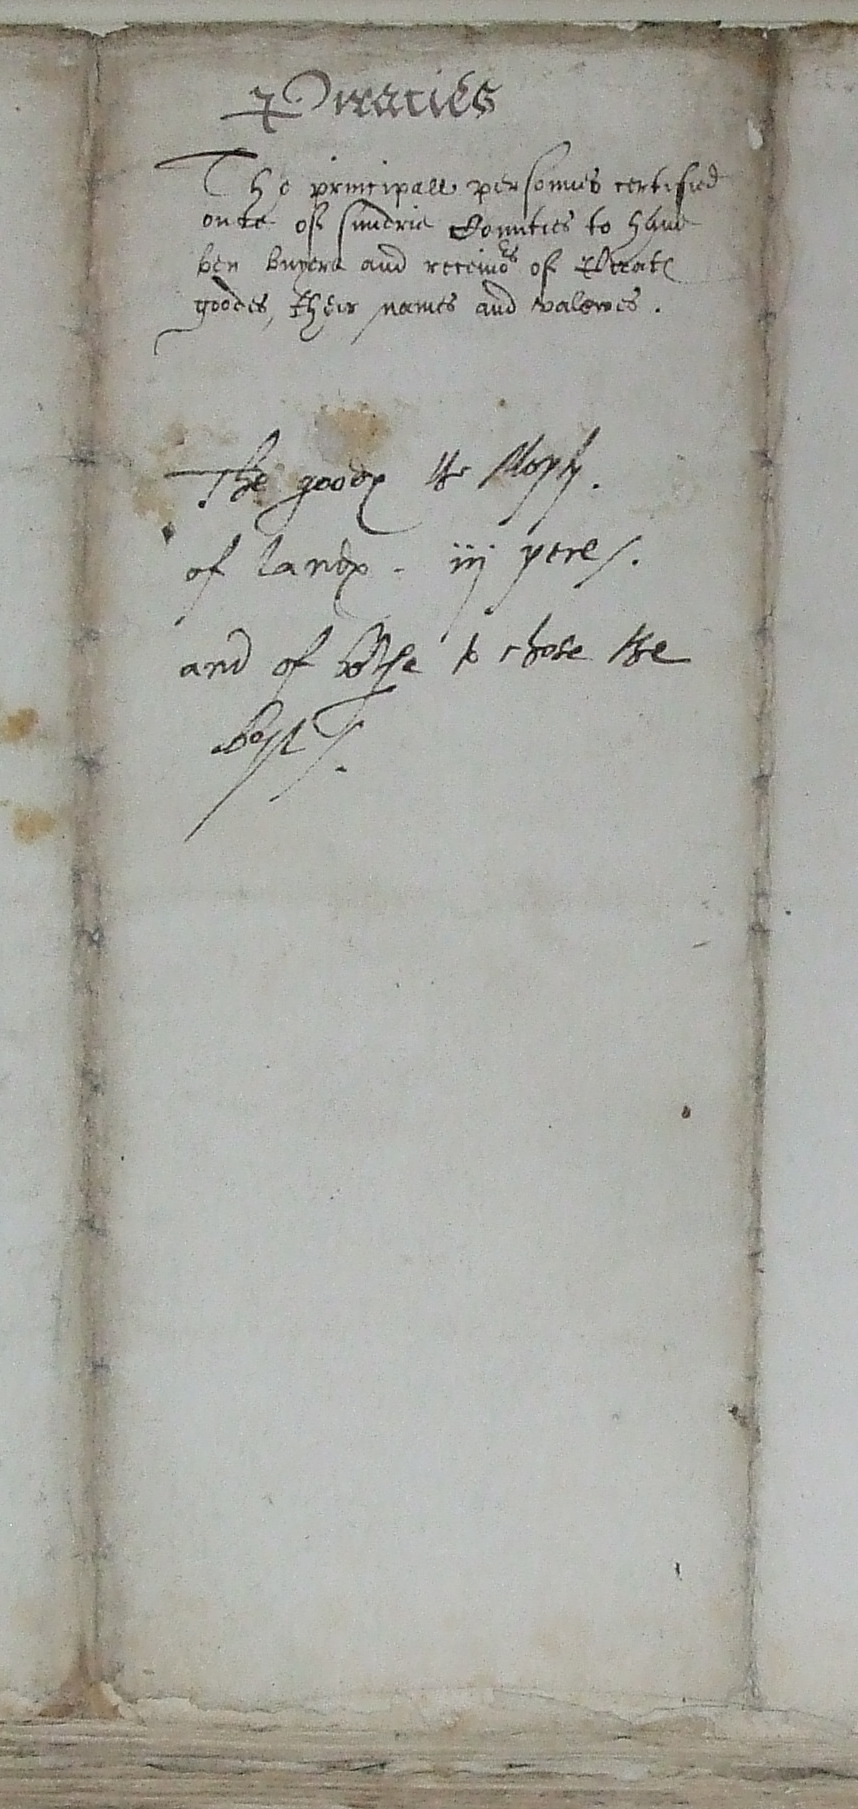 Piracies
The principall personnes certified
oute of sundrie Counties to haue
ben buyers and receiuors of Pirate
goodes, their names and valewes.
The goodes the
of landes - iij yeres.
and of bothe to chose the
best.